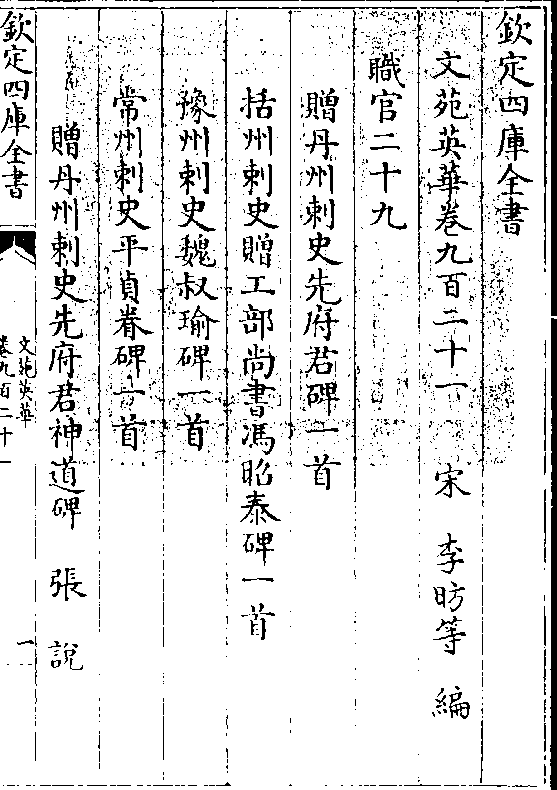 欽定四庫全書
文苑英華卷九百二十一　宋　李昉等　編
職官二十九
贈丹州刺史先府君碑一首
括州刺史贈工部尚書馮昭泰碑一首
豫州刺史魏叔瑜碑一首
常州刺史平貞眘碑一首
贈丹州刺史先府君神道碑　張　說
欽定四庫全書
文苑英華
卷九百二十一
一